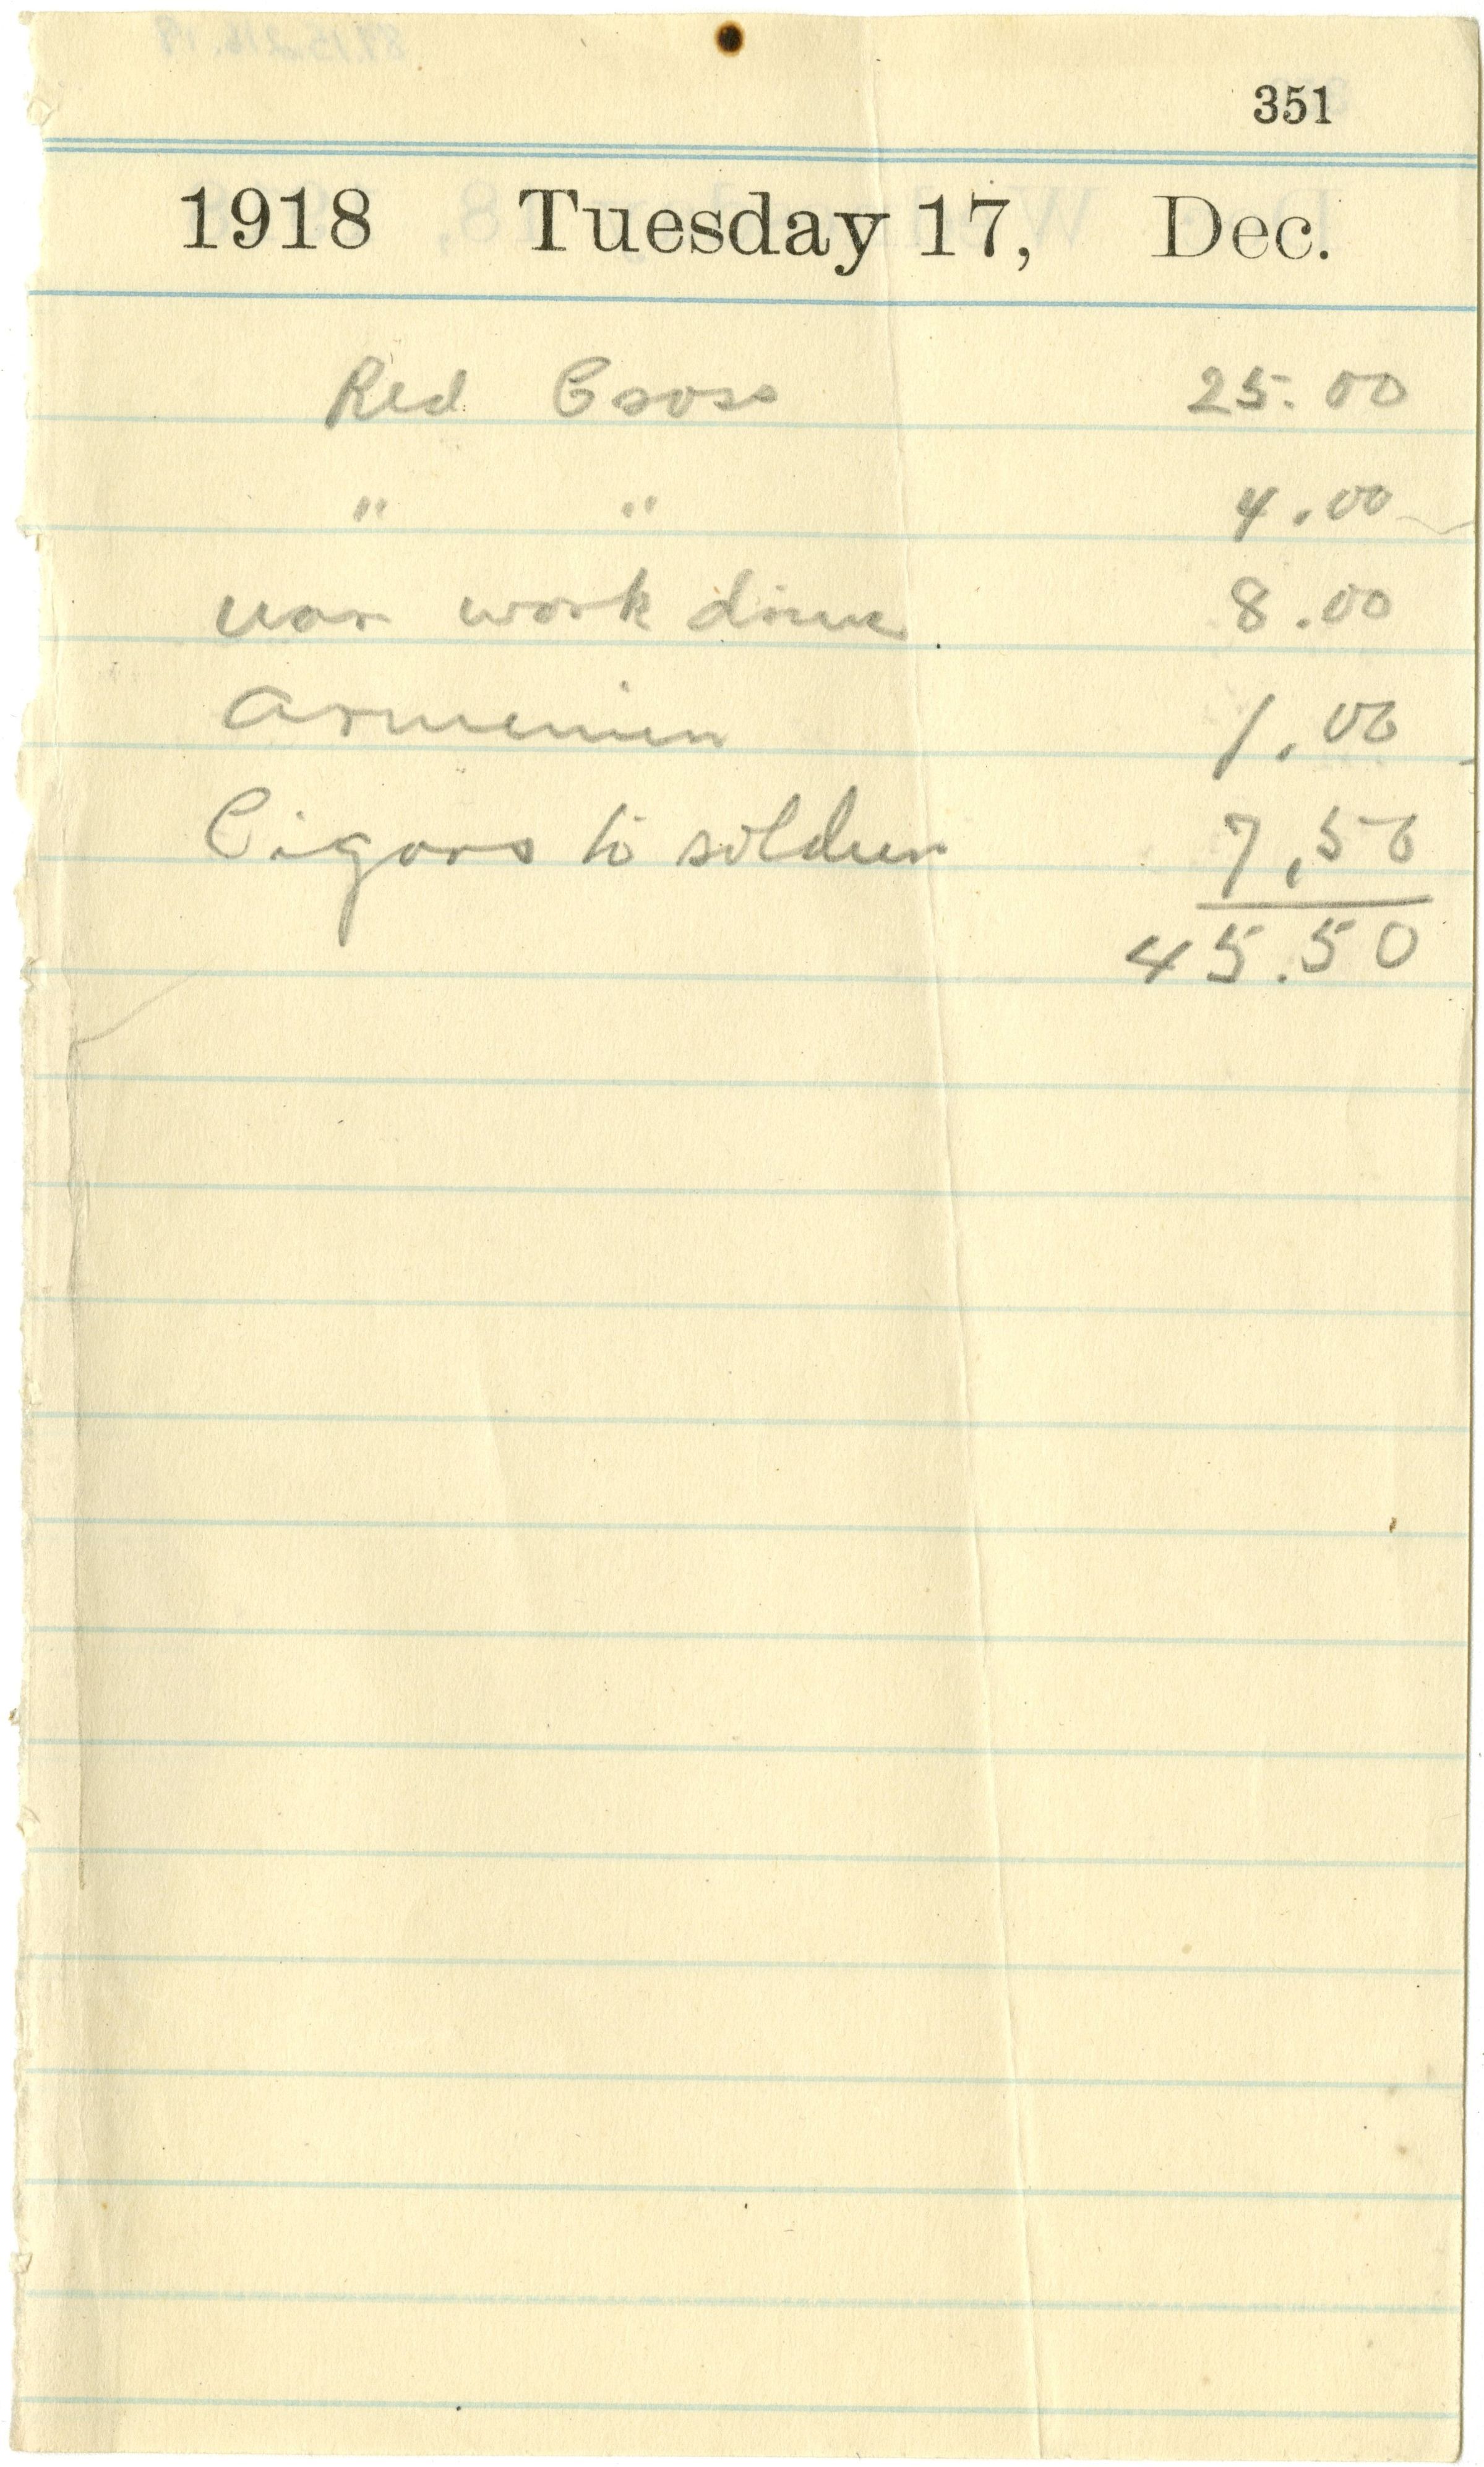 351
1918 Tuesday 17, Dec.
Red Cross 25.00
" " 4.00
war work drive 8.00
Armenien 1.00
Cigars to soldier 7,50
45.50